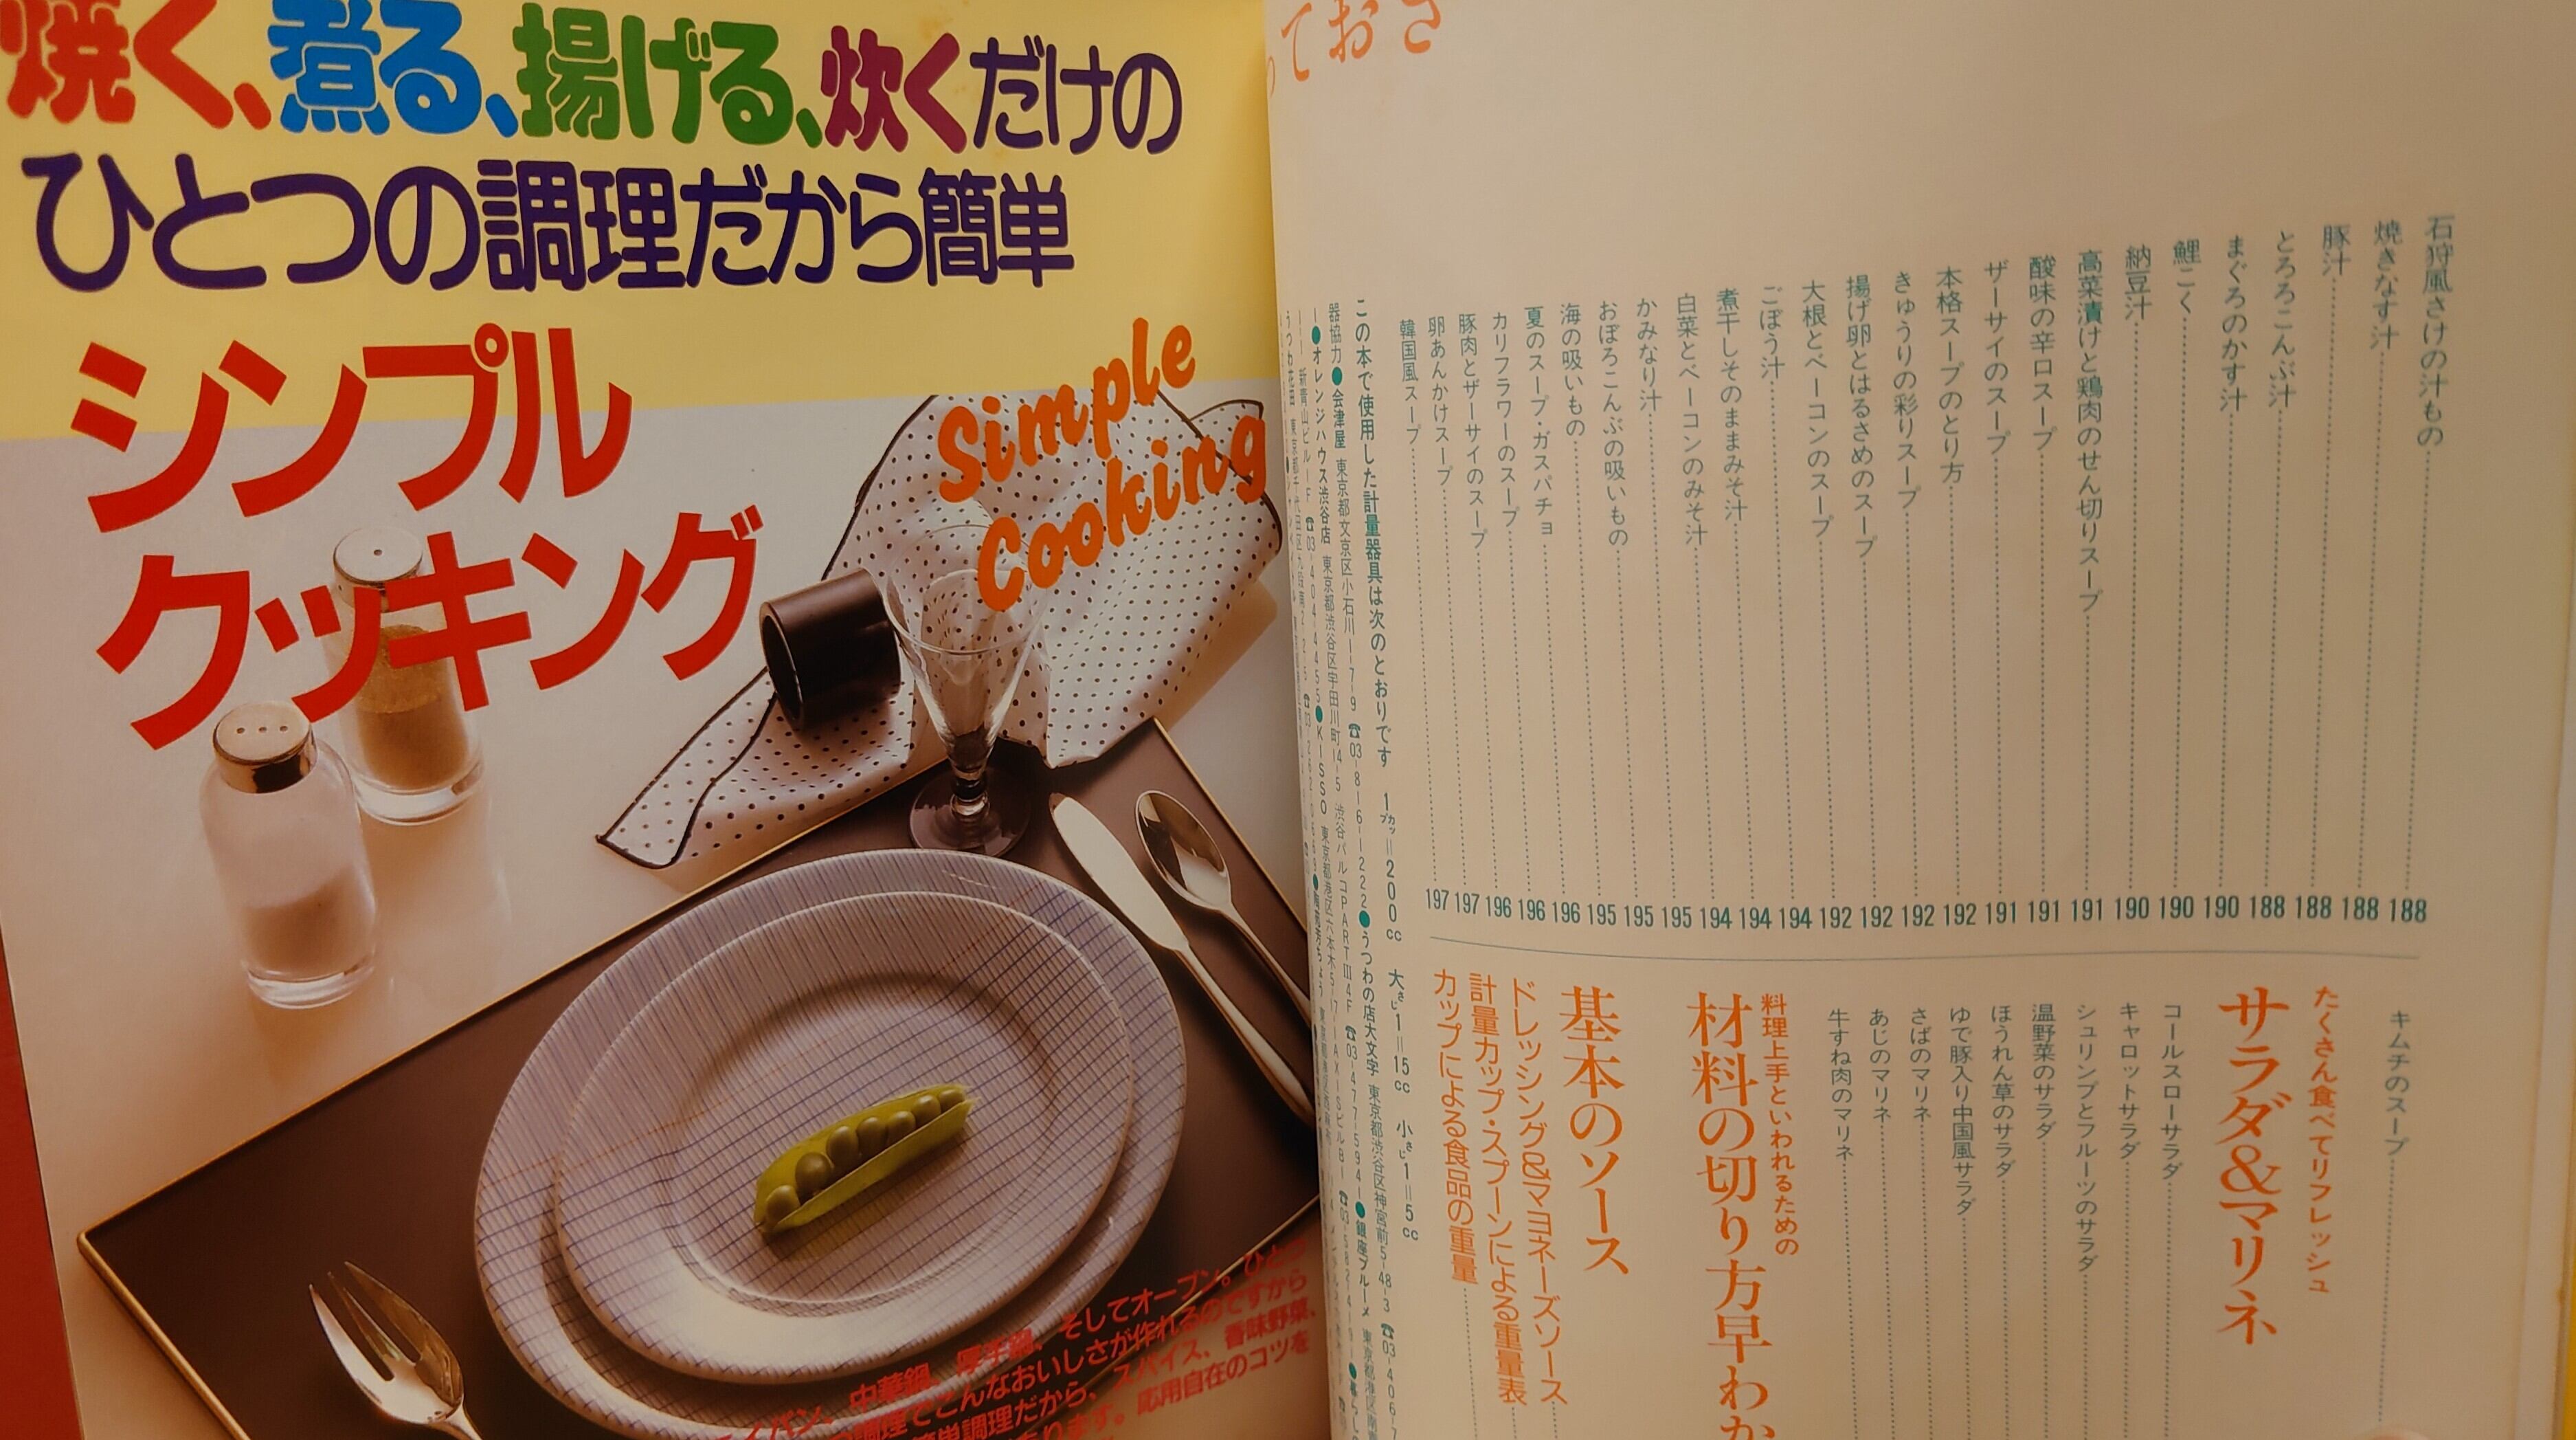 焼く、煮る、揚げる、炊くだけの
ひとつの調理だから簡単
シンプル
クッキング
Simple
Cooking
中華鍋、厚手鍋、そしてオーブン。ひとつ
調理でこんなおいしさが作れるのですから
簡単調理だから、スパイス、香味野菜、
応用自在のコツを
ておき
石狩風さけの汁もの 188
焼きなす汁 188
豚汁 188
とろろこんぶ汁 188
まぐろのかす汁 190
鯉こく 190
納豆汁 190
高菜漬けと鶏肉のせん切りスープ 191
酸味の辛口スープ 191
ザーサイのスープ 191
本格スープのとり方 192
きゅうりの彩りスープ 192
揚げ卵とはるさめのスープ 192
大根とベーコンのスープ 192
ごぼう汁 194
煮干しそのままみそ汁 194
白菜とベーコンのみそ汁 194
かみなり汁 195
おぼろこんぶの吸いもの 195
海の吸いもの 195
夏のスープ・ガスパチョ 196
カリフラワーのスープ 196
豚肉とザーサイのスープ 196
卵あんかけスープ 197
韓国風スープ 197
キムチのスープ
たくさん食べてリフレッシュ
サラダ&マリネ
コールスローサラダ
キャロットサラダ
シュリンプとフルーツのサラダ
温野菜のサラダ
ほうれん草のサラダ
ゆで豚入り中国風サラダ
さばのマリネ
あじのマリネ
牛すね肉のマリネ
料理上手といわれるための
材料の切り方早わか
基本のソース
ドレッシング&マヨネーズソース
計量カップ・スプーンによる重量表
カップによる食品の重量
この本で使用した計量器具は次のとおりです 1カップ=200cc 大さじ1=15cc 小さじ1=5cc
器協力●会津屋 東京都文京区小石川1-7-9 ☎03-816-1222●うつわの店大文字 東京都渋谷区神宮前5-48-3 ☎03-406-7
●オレンジハウス渋谷店 東京都渋谷区宇田川町14-5 渋谷パルコPARTⅢ4F ☎03-477-5941●銀座ブルーメ
新青山ビル1F ☎03-404-4455●KISSO 東京都港区六本木5-17-1AXISビルB1